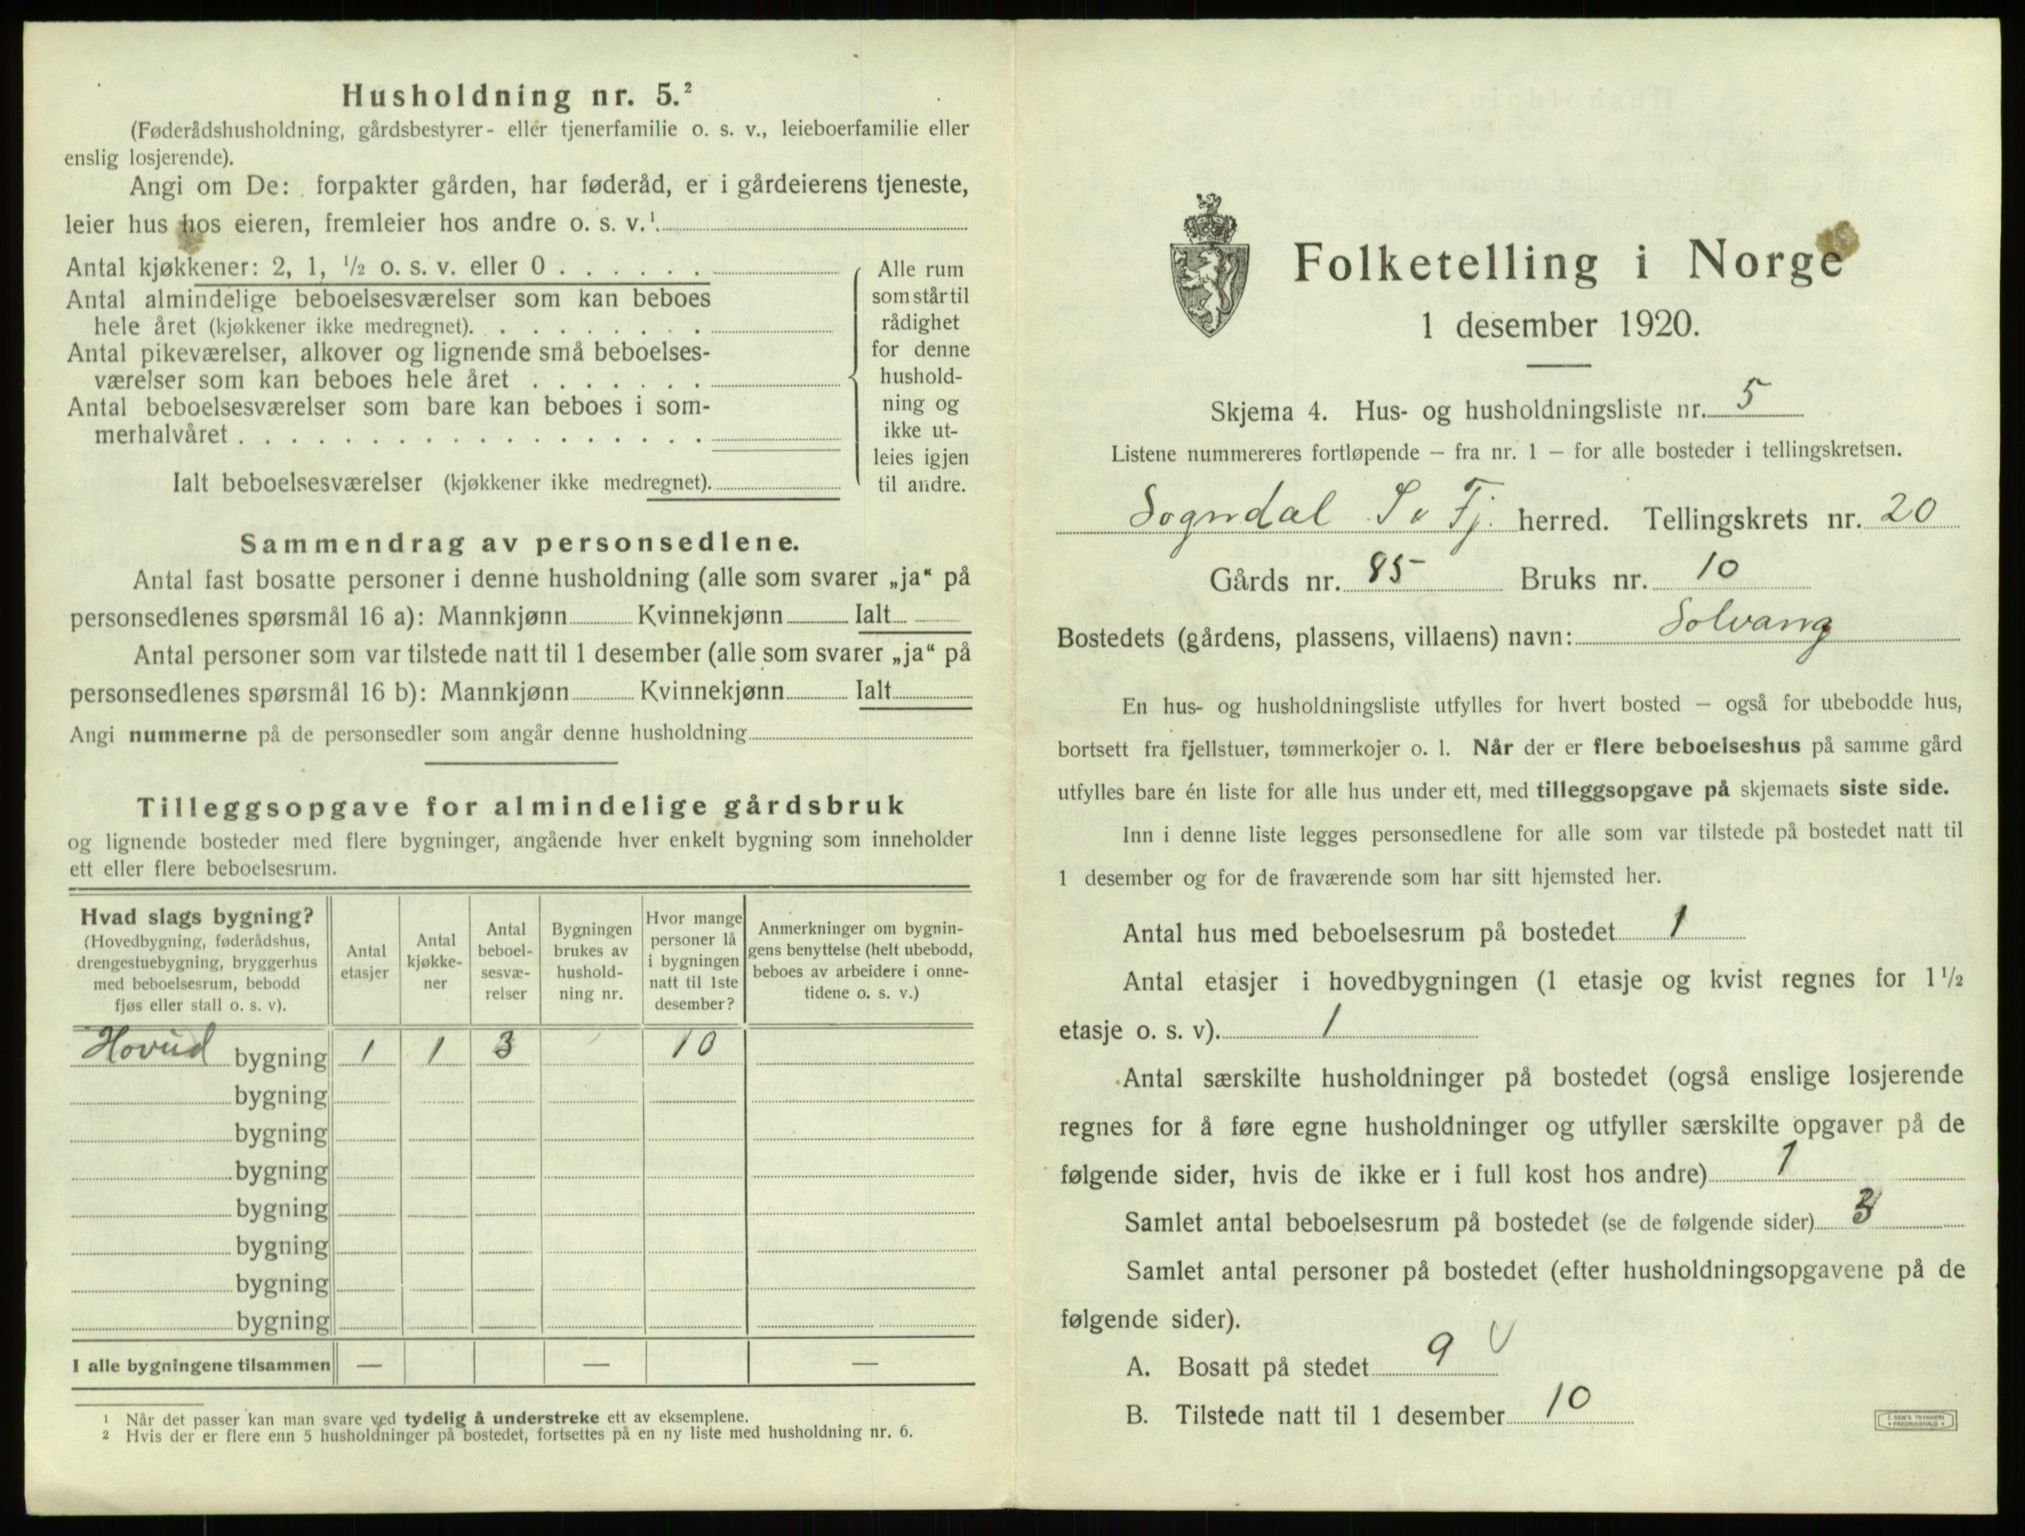 Husholdning nr. 5.²
(Føderådshusholdning, gårdsbestyrer- eller tjenerfamilie o. s. v., leieboerfamilie eller
enslig losjerende).
Angi om De: forpakter gården, har føderåd, er i gårdeierens tjeneste,
leier hus hos eieren, fremleier hos andre o. s. v.¹
Antal kjøkkener: 2, 1, ½ o. s. v. eller 0 . . . . . .
Antal almindelige beboelsesværelser som kan beboes
hele året (kjøkkener ikke medregnet). . . . . . . . .
Antal pikeværelser, alkover og lignende små beboelses-
værelser som kan beboes hele året . . . . . . .
Antal beboelsesværelser som bare kan beboes i som-
merhalvåret . . . . . . . . . . . . . . . . . .
Ialt beboelsesværelser (kjøkkener ikke medregnet).
Alle rum
som står til
rådighet
for denne
hushold-
ning og
ikke ut-
leies igjen
til andre.
Sammendrag av personsedlene.
Antal fast bosatte personer i denne husholdning (alle som svarer „ja“ på
personsedlenes spørsmål 16 a): Mannkjønn Kvinnekjønn Ialt
Antal personer som var tilstede natt til 1 desember (alle som svarer „ja“ på
personsedlenes spørsmål 16 b): Mannkjønn Kvinnekjønn Ialt
Angi nummerne på de personsedler som angår denne husholdning
Tilleggsopgave for almindelige gårdsbruk
og lignende bosteder med flere bygninger, angående hver enkelt bygning som inneholder
ett eller flere beboelsesrum.
Hvad slags bygning?
(Hovedbygning, føderådshus,
drengestuebygning, bryggerhus
med beboelsesrum, bebodd
fjøs eller stall o. s. v).
Antal
etasjer
Antal
kjøkke-
ner
Antal
beboel-
sesvæ-
relser
Bygningen
brukes av
hushold-
ning nr.
Hvor mange
personer lå
i bygningen
natt til 1ste
desember?
Anmerkninger om bygnin-
gens benyttelse (helt ubebodd,
beboes av arbeidere i onne-
tidene o. s. v.)
Hovud bygning 1 1 3 10
bygning
bygning
bygning
bygning
bygning
bygning
bygning
I alle bygningene tilsammen — — —
1 Når det passer kan man svare ved tydelig å understreke ett av eksemplene.
2 Hvis der er flere enn 5 husholdninger på bostedet, fortsettes på en ny liste med husholdning nr. 6.
Folketelling i Norge
1 desember 1920.
Skjema 4. Hus- og husholdningsliste nr. 5
Listene nummereres fortløpende – fra nr. 1 – for alle bosteder i tellingskretsen.
Sogndal S o Fj. herred. Tellingskrets nr. 20
Gårds nr. 85 Bruks nr. 10
Bostedets (gårdens, plassens, villaens) navn: Solvang
En hus- og husholdningsliste utfylles for hvert bosted – også for ubebodde hus,
bortsett fra fjellstuer, tømmerkojer o. l. Når der er flere beboelseshus på samme gård
utfylles bare én liste for alle hus under ett, med tilleggsopgave på skjemaets siste side.
Inn i denne liste legges personsedlene for alle som var tilstede på bostedet natt til
1 desember og for de fraværende som har sitt hjemsted her.
Antal hus med beboelsesrum på bostedet 1
Antal etasjer i hovedbygningen (1 etasje og kvist regnes for 1 ½
etasje o. s. v). 1
Antal særskilte husholdninger på bostedet (også enslige losjerende
regnes for å føre egne husholdninger og utfyller særskilte opgaver på de
følgende sider, hvis de ikke er i full kost hos andre) 1
Samlet antal beboelsesrum på bostedet (se de følgende sider) 3
Samlet antal personer på bostedet (efter husholdningsopgavene på de
følgende sider).
A. Bosatt på stedet 9
B. Tilstede natt til 1 desember 10
E. SEM'S TRYKKERI
• FREDRIKSHALD •